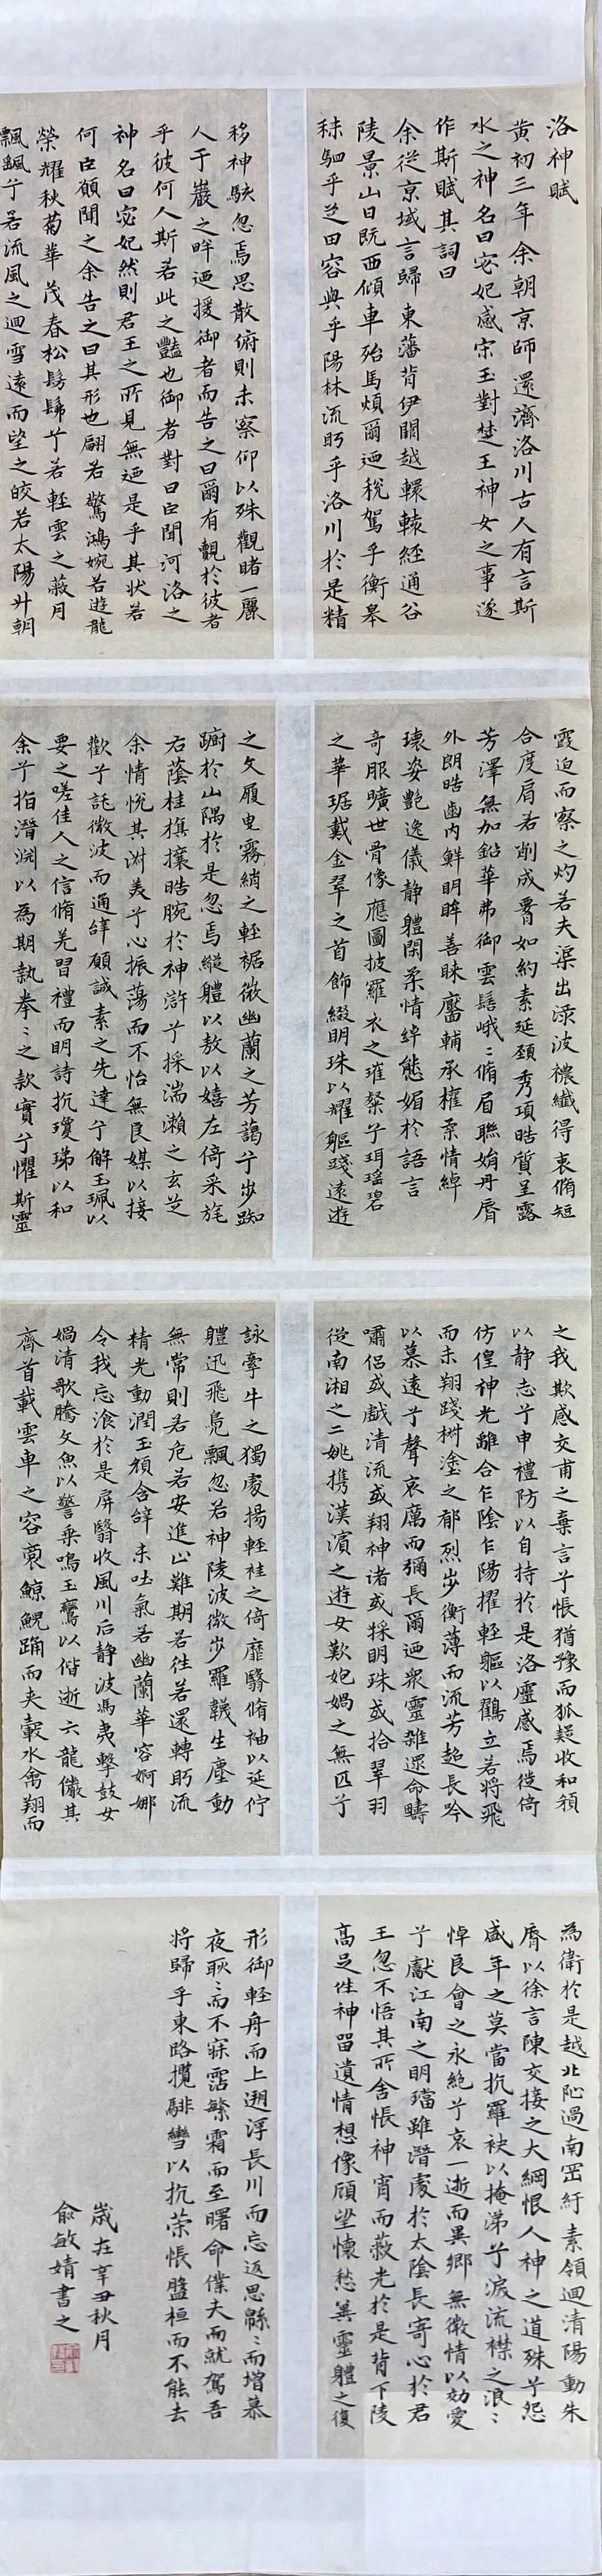 洛神賦
黄初三年余朝京師還濟洛川古人有言斯
水之神名曰宓妃感宋玉對楚王神女之事遂
作斯賦其詞曰
余從京域言歸東藩背伊闕越轘轅經通谷
陵景山日既西傾車殆馬煩爾迺稅駕乎蘅皋
秣駟乎芝田容與乎陽林流眄乎洛川於是精
移神駭忽焉思散俯則未察仰以殊觀睹一麗
人于巖之畔迺援御者而告之曰爾有覿於彼者
乎彼何人斯若此之豔也御者對曰臣聞河洛之
神名曰宓妃然則君王之所見無迺是乎其状若
何臣願聞之余告之曰其形也翩若驚鴻婉若遊龍
榮耀秋菊華茂春松髣髴兮若輕雲之蔽月
飄飖兮若流風之迴雪遠而望之皎若太陽升朝
霞迫而察之灼若夫渠出淥波穠纖得衷脩短
合度肩若削成腰如約素延頚秀項皓質呈露
芳澤無加鉛華弗御雲髻峨〻脩眉聯娟丹脣
外朗皓齒内鮮明眸善睐靨輔承權柔情綽
瓌姿艷逸儀静軆閑柔情綽態媚於語言
奇服曠世骨像應圖披羅衣之璀粲兮珥瑶碧
之華琚戴金翠之首飾綴明珠以耀軀踐遠遊
之文履曳霧綃之輕裾微幽蘭之芳藹兮步踟
蹰於山隅於是忽焉縱軆以敖以嬉左倚采旄
右蔭桂旗攘皓腕於神滸兮採湍瀨之玄芝
余情悅其淑美兮心振蕩而不怡無良媒以接
歡兮託微波而通辭願誠素之先達兮解玉珮以
要之嗟佳人之信脩羌習禮而明詩抗瓊珶以和
余兮指潛淵以為期執拳〻之款實兮懼斯靈
之我欺感交甫之棄言兮悵猶豫而狐疑收和顔
以静志兮申禮防以自持於是洛靈感焉徙倚
仿偟神光離合乍陰乍陽擢輕軀以鶴立若将飛
而未翔踐椒塗之郁烈步衡薄而流芳超長吟
以慕遠兮聲哀厲而彌長爾迺衆靈雜遝命疇
嘯侣或戲清流或翔神渚或採明珠或拾翠羽
從南湘之二姚携漢濱之遊女歎匏媧之無匹兮
詠牽牛之獨處揚輕袿之倚靡翳脩袖以延佇
軆迅飛鳧飄忽若神陵波微步羅韈生塵動
無常則若危若安進止難期若往若還轉眄流
精光動潤玉顔含辭未吐氣若幽蘭華容婀娜
令我忘飡於是屏翳收風川后静波馮夷擊鼓女
媧清歌騰文魚以警乗鳴玉鸞以偕逝六龍儼其
齊首載雲車之容裔鯨鯢踊而夾轂水禽翔而
為衛於是越北沚過南岡紆素領迴清陽動朱
脣以徐言陳交接之大綱恨人神之道殊兮怨
盛年之莫當抗羅袂以掩涕兮淚流襟之浪〻
悼良會之永絶兮哀一逝而異鄉無微情以効愛
兮獻江南之明璫雖潛處於太陰長寄心於君
王忽不悟其所舍悵神宵而蔽光於是背下陵
高足往神留遺情想像顧望懷愁冀靈軆之復
形御輕舟而上遡浮長川而忘返思緜〻而增慕
夜耿〻而不寐霑繁霜而至曙命僕夫而就駕吾
将歸乎東路攬騑轡以抗䇿悵盤桓而不能去
歲在辛丑秋月
俞敏婧書之